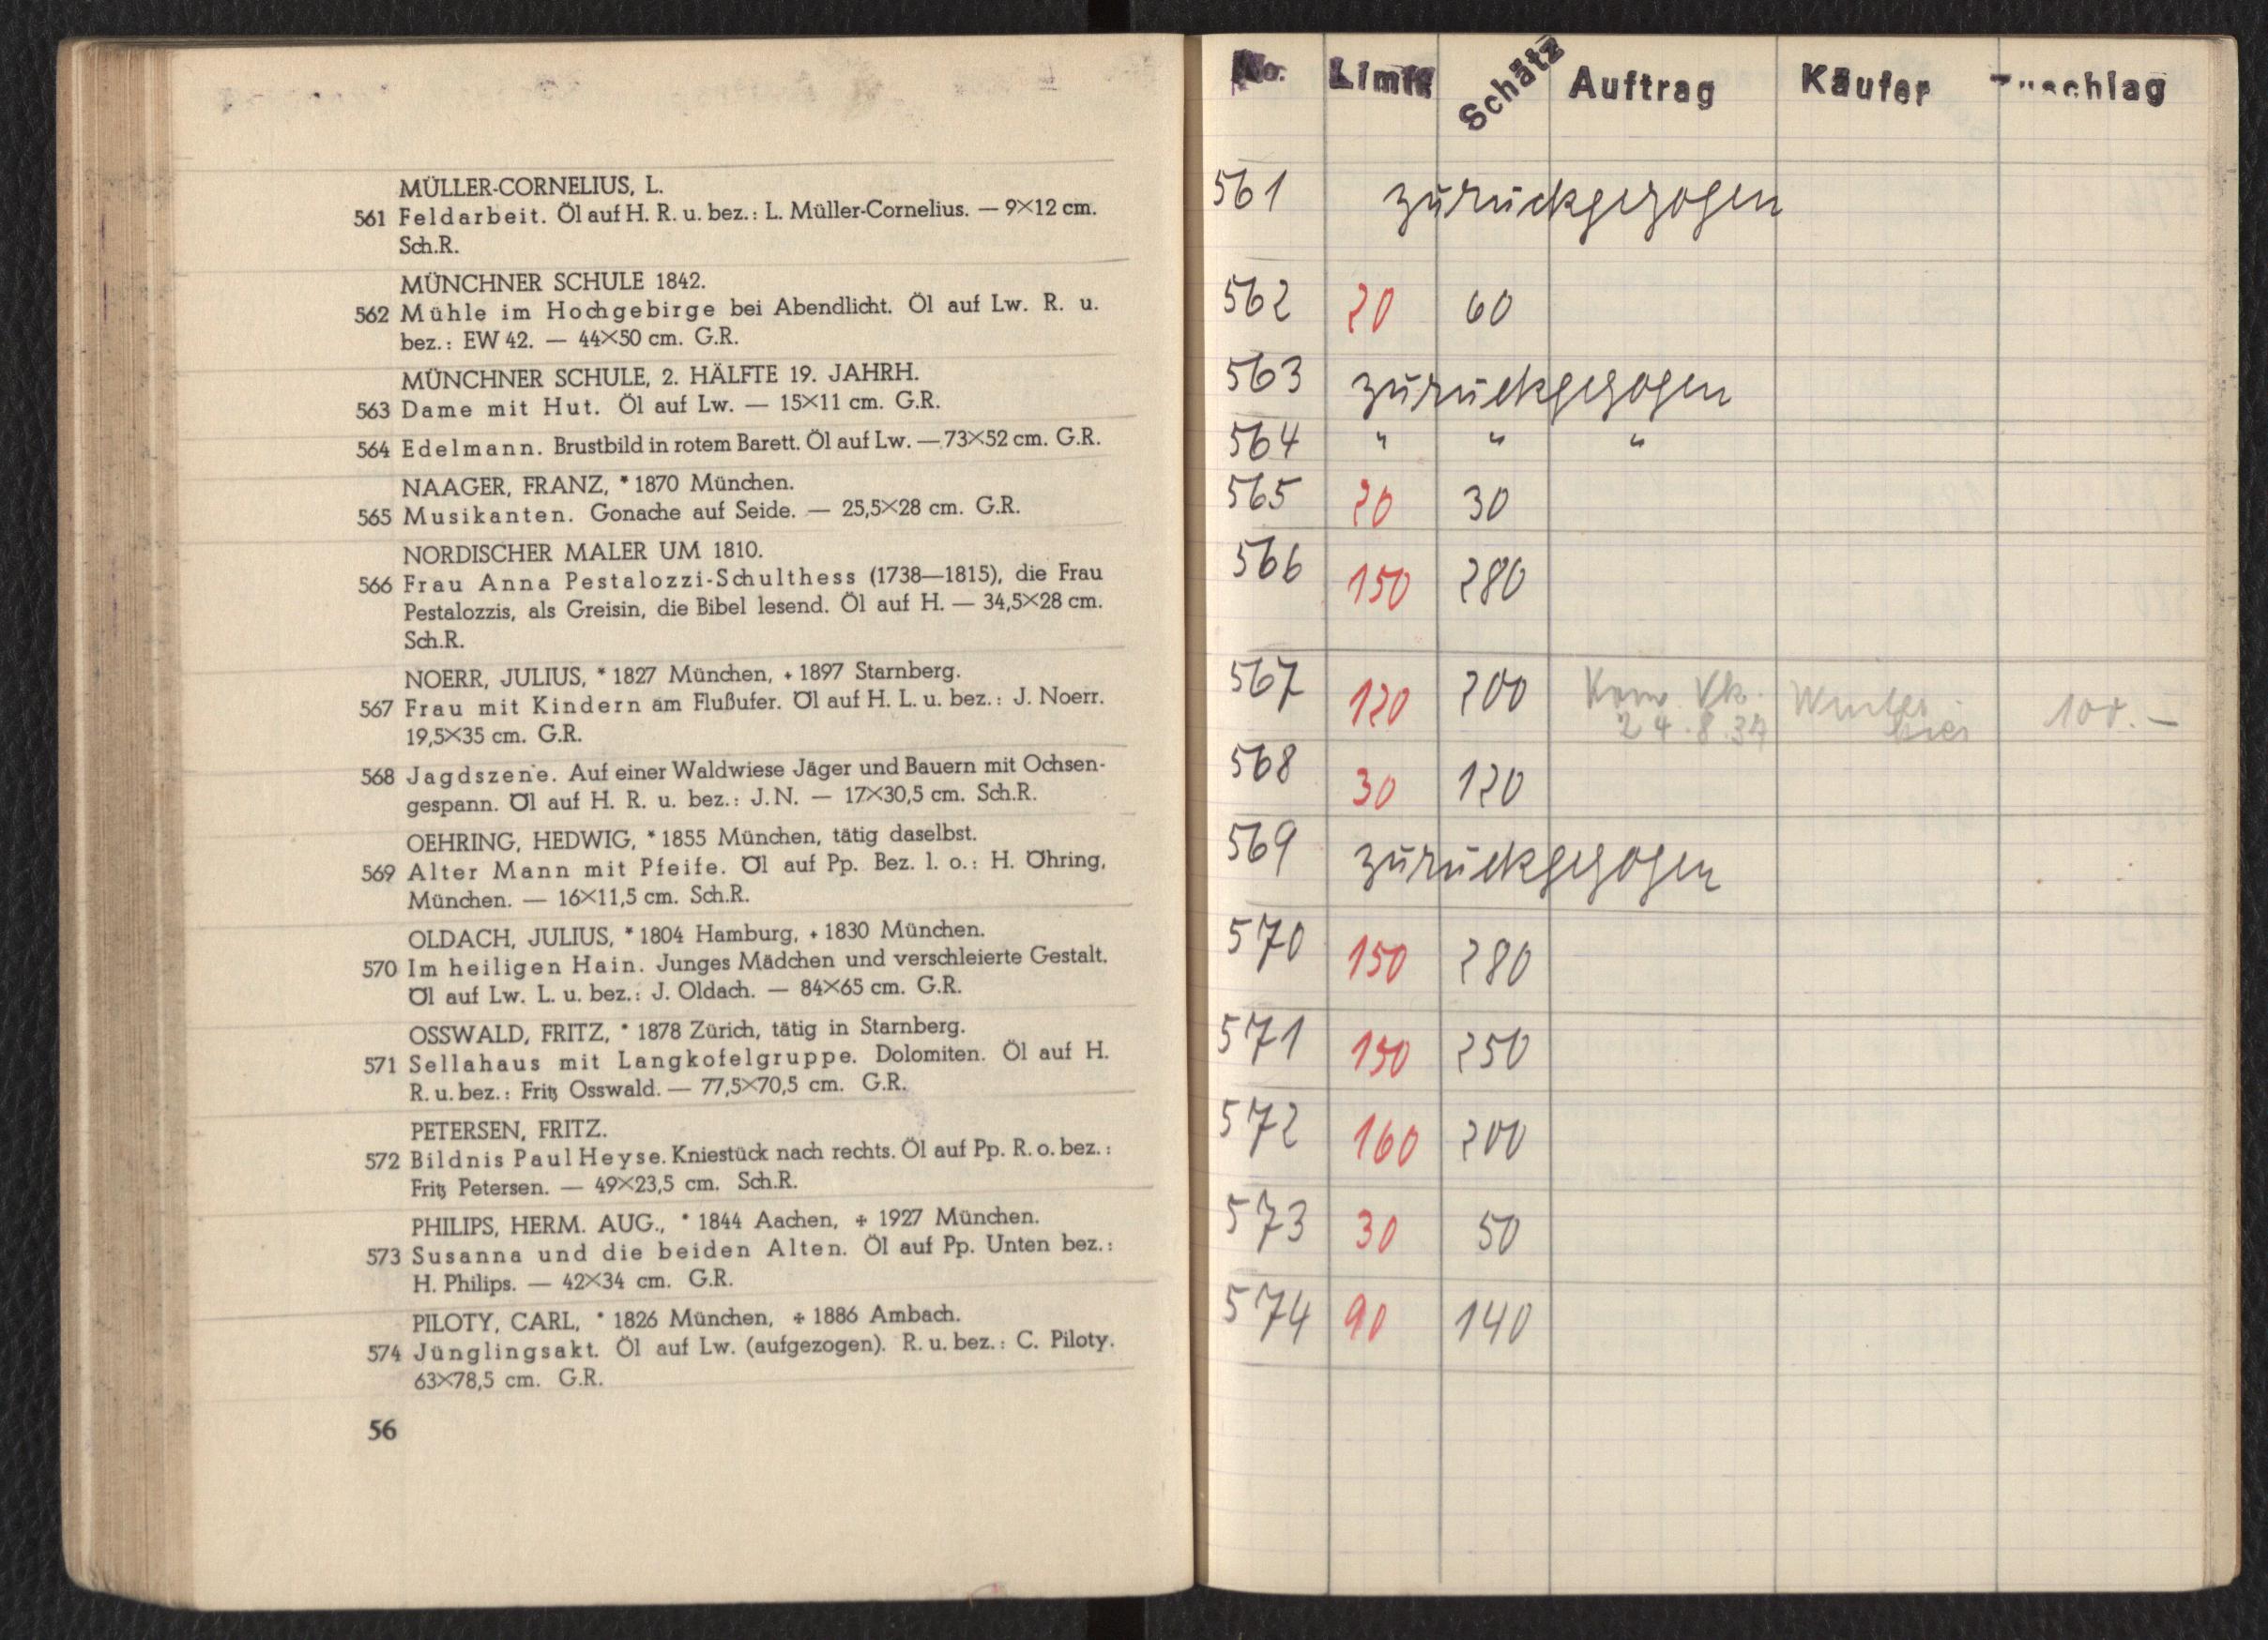 MÜLLER-CORNELIUS, L.
561 Feldarbeit. Öl auf H. R. u. bez.: L. Müller-Cornelius. — 9×12 cm.
Sch.R.
MÜNCHNER SCHULE 1842.
562 Mühle im Hochgebirge bei Abendlicht. Öl auf Lw. R. u.
bez.: EW 42. — 44×50 cm. G.R.
MÜNCHNER SCHULE, 2. HÄLFTE 19. JAHRH.
563 Dame mit Hut. Öl auf Lw. — 15×11 cm. G.R.
564 Edelmann. Brustbild in rotem Barett. Öl auf Lw. — 73×52 cm. G.R.
NAAGER, FRANZ, * 1870 München.
565 Musikanten. Gonache auf Seide. — 25,5×28 cm. G.R.
NORDISCHER MALER UM 1810.
566 Frau Anna Pestalozzi-Schulthess (1738—1815), die Frau
Pestalozzis, als Greisin, die Bibel lesend. Öl auf H. — 34,5×28 cm.
Sch.R.
NOERR, JULIUS, * 1827 München, + 1897 Starnberg.
567 Frau mit Kindern am Flußufer. Öl auf H. L. u. bez.: J. Noerr.
19,5×35 cm. G.R.
568 Jagdszene. Auf einer Waldwiese Jäger und Bauern mit Ochsen-
gespann. Öl auf H. R. u. bez.: J.N. — 17×30,5 cm. Sch.R.
OEHRING, HEDWIG, * 1855 München, tätig daselbst.
569 Alter Mann mit Pfeife. Öl auf Pp. Bez. l. o.: H. Öhring,
München. — 16×11,5 cm. Sch.R.
OLDACH, JULIUS, * 1804 Hamburg, + 1830 München.
570 Im heiligen Hain. Junges Mädchen und verschleierte Gestalt.
Öl auf Lw. L. u. bez.: J. Oldach. — 84×65 cm. G.R.
OSSWALD, FRITZ, * 1878 Zürich, tätig in Starnberg.
571 Sellahaus mit Langkofelgruppe. Dolomiten. Öl auf H.
R. u. bez.: Fritz Osswald. — 77,5×70,5 cm. G.R.
PETERSEN, FRITZ.
572 Bildnis Paul Heyse. Kniestück nach rechts. Öl auf Pp. R. o. bez.:
Fritz Petersen. — 49×23,5 cm. Sch.R.
PHILIPS, HERM. AUG., * 1844 Aachen, + 1927 München.
573 Susanna und die beiden Alten. Öl auf Pp. Unten bez.:
H. Philips. — 42×34 cm. G.R.
PILOTY, CARL, * 1826 München, + 1886 Ambach.
574 Jünglingsakt. Öl auf Lw. (aufgezogen). R. u. bez.: C. Piloty.
63×78,5 cm. G.R.
56
No. Limit Schätz Auftrag Käufer Zuschlag
561 zurückgezogen
562 20 60
563 zurückgezogen
564 " " "
565 20 30
566 150 280
567 120 200 Vk. 100.—
24.8.37
568 30 120
569 zurückgezogen
570 150 280
571 150 250
572 160 200
573 30 50
574 90 140